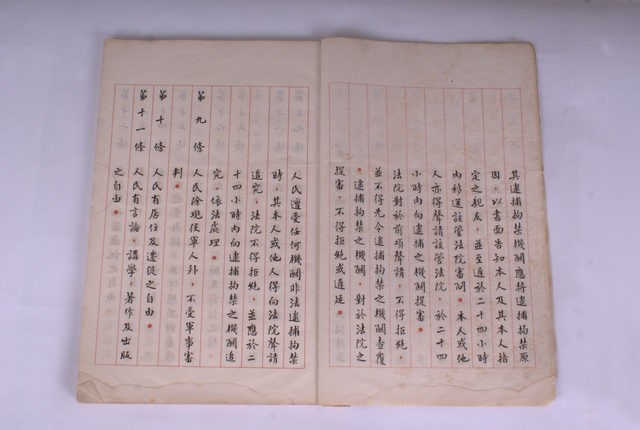 其逮捕拘禁機關應將逮捕拘禁原
因，以書面告知本人及其本人指
定之親友，並至遲於二十四小時
內移送該管法院審問。本人或他
人亦得聲請該管法院，於二十四
小時內向逮捕之機關提審。
法院對於前項聲請，不得拒絕，
並不得先令逮捕拘禁之機關查覆
。逮捕拘禁之機關，對於法院之
提審，不得拒絕或遲延。
人民遭受任何機關非法逮捕拘禁
時，其本人或他人得向法院聲請
追究，法院不得拒絕，並應於二
十四小時內向逮捕拘禁之機關追
究，依法處理。
第九條 人民除現役軍人外，不受軍事審
判。
第十條 人民有居住及遷徙之自由。
第十一條 人民有言論，講學，著作及出版
之自由。